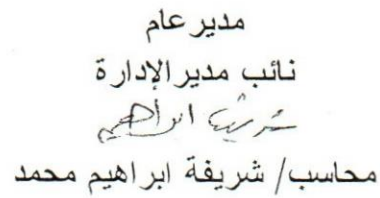 مدير عام
نائب مدير الإدارة
شريفة ابراهيم
محاسب/ شريفة ابراهيم محمد